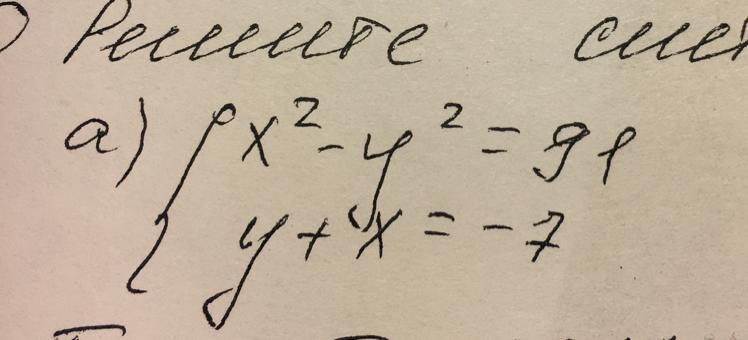 Решите
а) { x² - y² = 91
y + x = -7